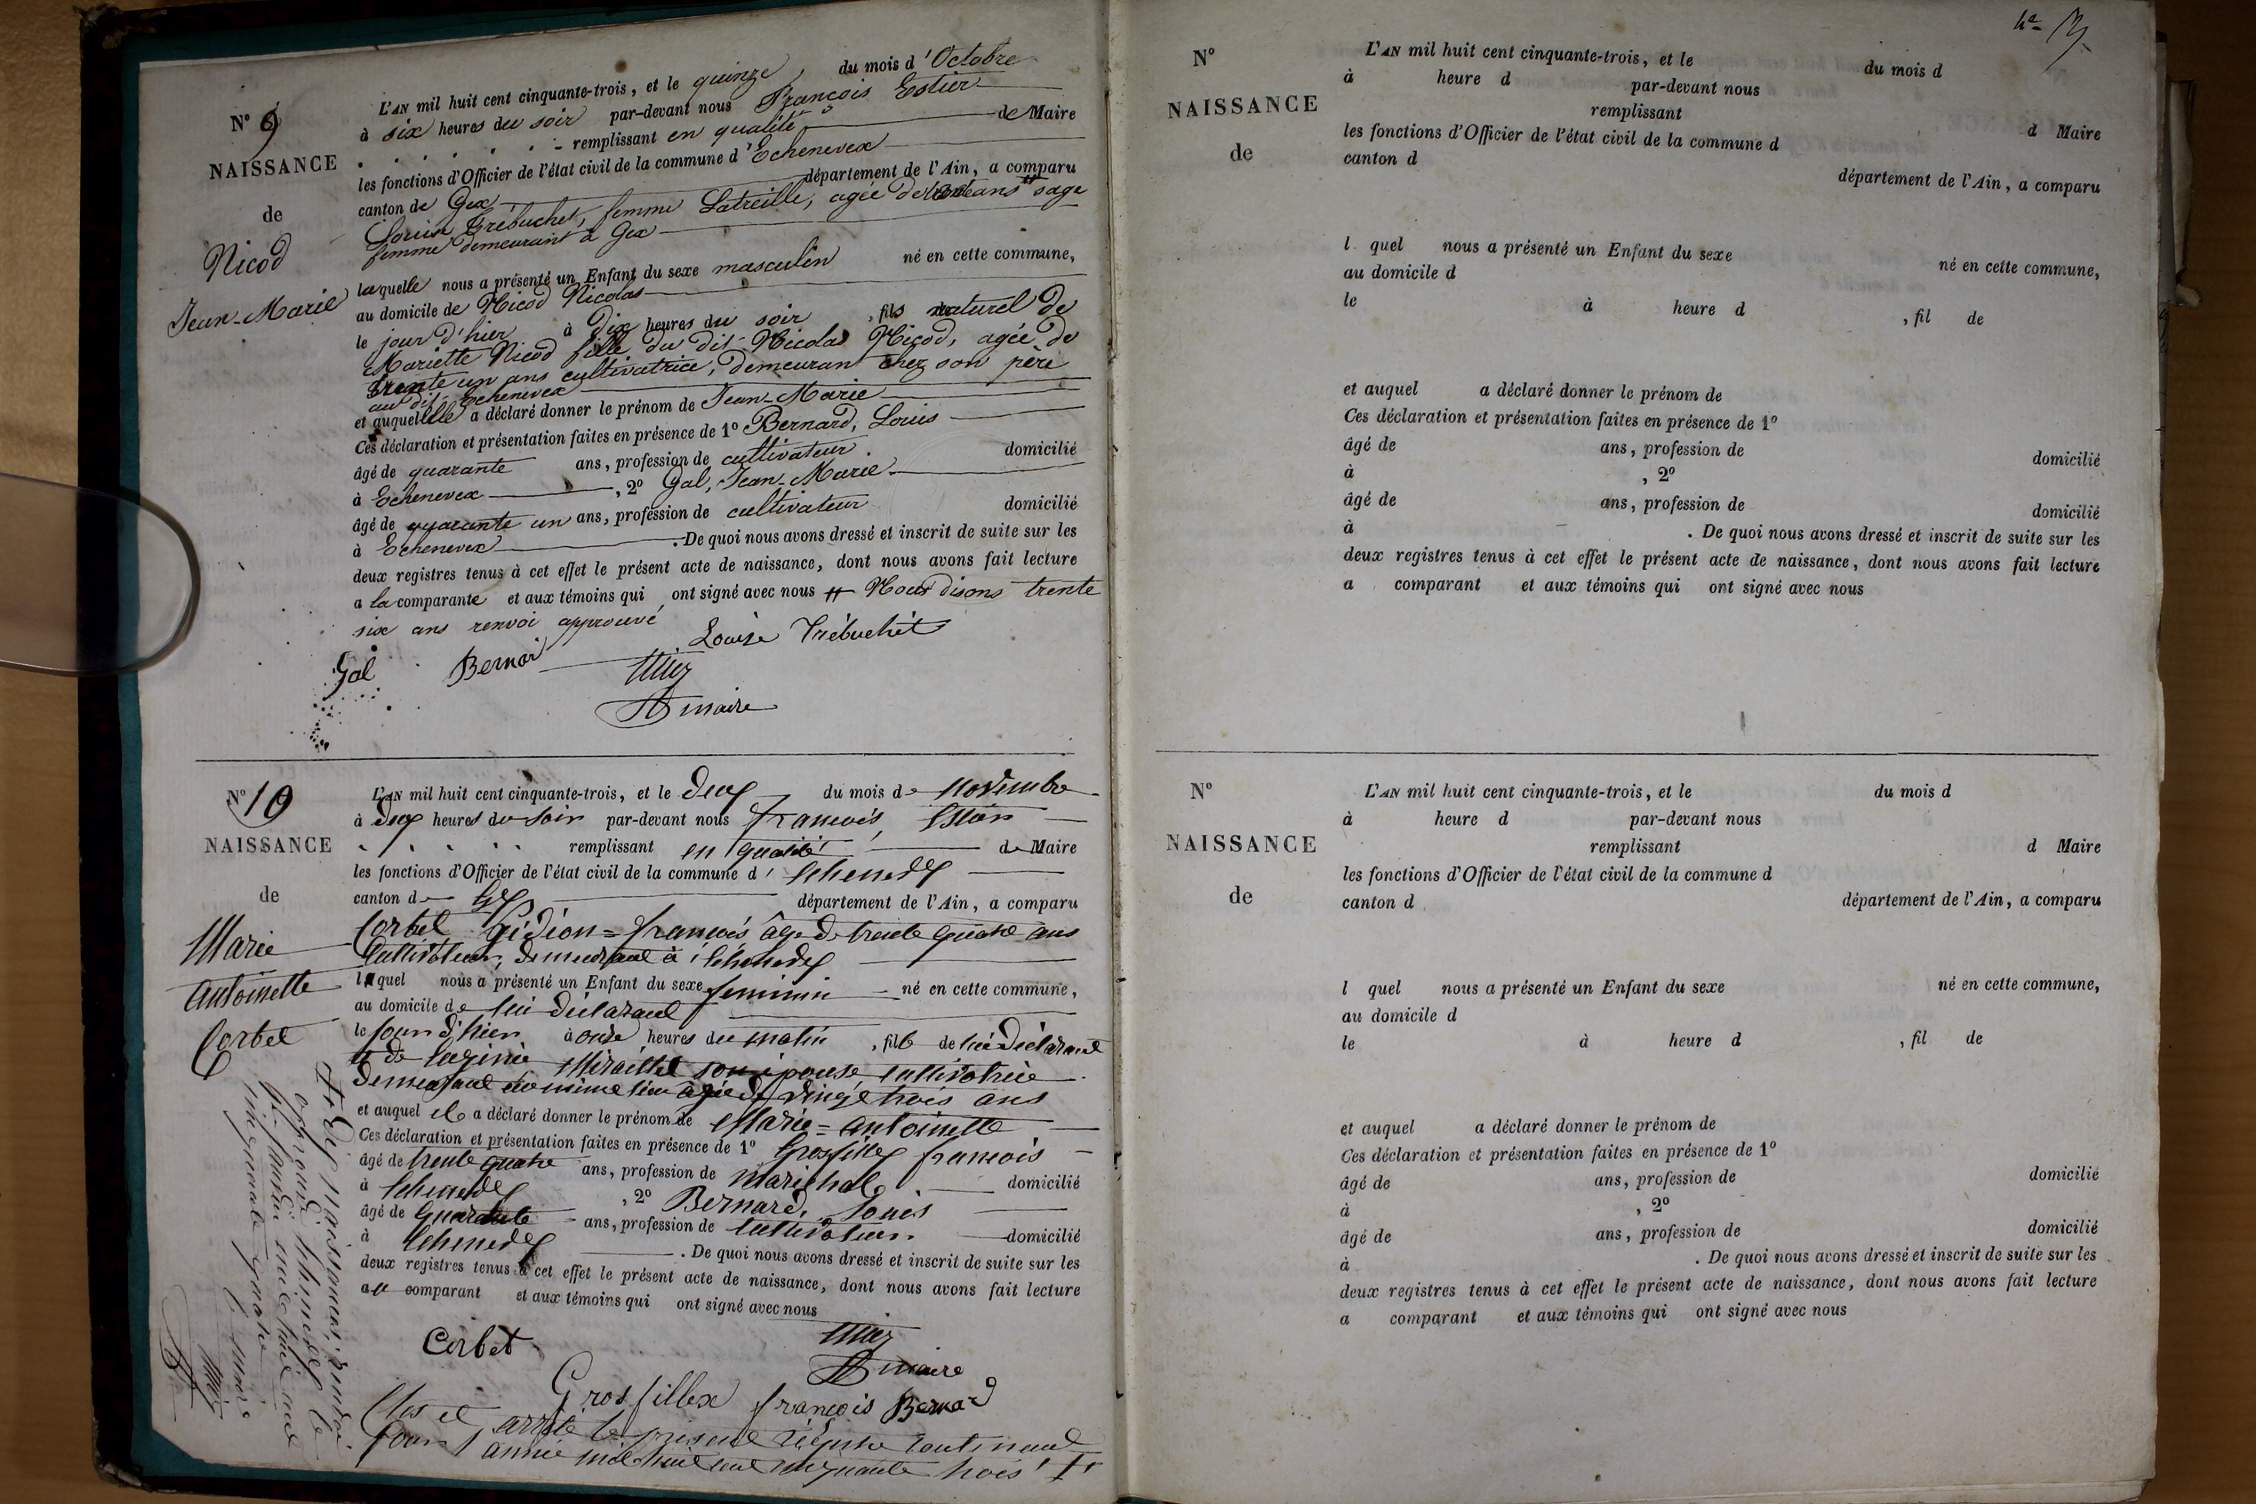 N° 9
NAISSANCE
de
Nicod
Jean-Marie
L'AN mil huit cent cinquante-trois, et le quinze, du mois d'Octobre
à six heures du soir par-devant nous François Estier
remplissant en qualité de Maire
les fonctions d'Officier de l'état civil de la commune d'Echenevex
canton de Gex département de l'Ain, a comparu
Louise Trébuchet, femme Latreille, agée de ans # sage
femme demeurant à Gex
laquelle nous a présenté un Enfant du sexe masculin né en cette commune,
au domicile de Nicod Nicolas
le jour d'hier à dix heures du soir, fils naturel de
Mariette Nicod fille du dit Nicolas Nicod, agée de
trente un ans cultivatrice, demeurant chez son père
au dit Echenevex
et auquel elle a déclaré donner le prénom de Jean-Marie
Ces déclaration et présentation faites en présence de 1° Bernard, Louis
âgé de quarante ans, profession de cultivateur. domicilié
à Echenevex, 2° Gal, Jean-Marie
âgé de quarante un ans, profession de cultivateur domicilié
à Echenevex. De quoi nous avons dressé et inscrit de suite sur les
deux registres tenus à cet effet le présent acte de naissance, dont nous avons fait lecture
a la comparante et aux témoins qui ont signé avec nous # Nous disons trente
six ans renvoi approuvé
Louise Trébuchet
Gal Bernar
maire
N° 10
NAISSANCE
de
Marie
Antoinette
Corbet
L'AN mil huit cent cinquante-trois, et le deux du mois de Novembre
à deux heures du soir par-devant nous françois, Estier
remplissant en qualité de Maire
les fonctions d'Officier de l'état civil de la commune d'Echenevex
canton de Gex département de l'Ain, a comparu
Corbet Gédéon=françois âgé de trente quatre ans
Cultivateur, demeurant à Echenevex
lequel nous a présenté un Enfant du sexe feminin né en cette commune,
au domicile de lui déclarant
le jour d'hier à onze heures du matin, fille de lui déclarant
et de son épouse cultivatrice
demeurant au même lieu agée de vingt trois ans
et auquel il a déclaré donner le prénom de Marie=antoinette
Ces déclaration et présentation faites en présence de 1° Grosfillex françois
âgé de trente quatre ans, profession de maréchal domicilié
à Echenevex, 2° Bernard, Louis
âgé de quarante ans, profession de cultivateur domicilié
à Echenevex. De quoi nous avons dressé et inscrit de suite sur les
deux registres tenus à cet effet le présent acte de naissance, dont nous avons fait lecture
au comparant et aux témoins qui ont signé avec nous
Corbet
maire
Grosfillex françois Bernard
Clos et arrêté le présent régistre contenant
pour année mil huit cent cinquante trois
dix Naissances,
approuvé Echenevex le
janvier mil huit cent
cinquante quatre
maire
N°
NAISSANCE
de
L'AN mil huit cent cinquante-trois, et le du mois d
à heure d par-devant nous
remplissant d Maire
les fonctions d'Officier de l'état civil de la commune d
canton d département de l'Ain, a comparu
l quel nous a présenté un Enfant du sexe né en cette commune,
au domicile d
le à heure d, fil de
et auquel a déclaré donner le prénom de
Ces déclaration et présentation faites en présence de 1°
âgé de ans, profession de domicilié
à, 2°
âgé de ans, profession de domicilié
à. De quoi nous avons dressé et inscrit de suite sur les
deux registres tenus à cet effet le présent acte de naissance, dont nous avons fait lecture
a comparant et aux témoins qui ont signé avec nous
N°
NAISSANCE
de
L'AN mil huit cent cinquante-trois, et le du mois d
à heure d par-devant nous
remplissant d Maire
les fonctions d'Officier de l'état civil de la commune d
canton d département de l'Ain, a comparu
l quel nous a présenté un Enfant du sexe né en cette commune,
au domicile d
le à heure d, fil de
et auquel a déclaré donner le prénom de
Ces déclaration et présentation faites en présence de 1°
âgé de ans, profession de domicilié
à, 2°
âgé de ans, profession de domicilié
à. De quoi nous avons dressé et inscrit de suite sur les
deux registres tenus à cet effet le présent acte de naissance, dont nous avons fait lecture
a comparant et aux témoins qui ont signé avec nous